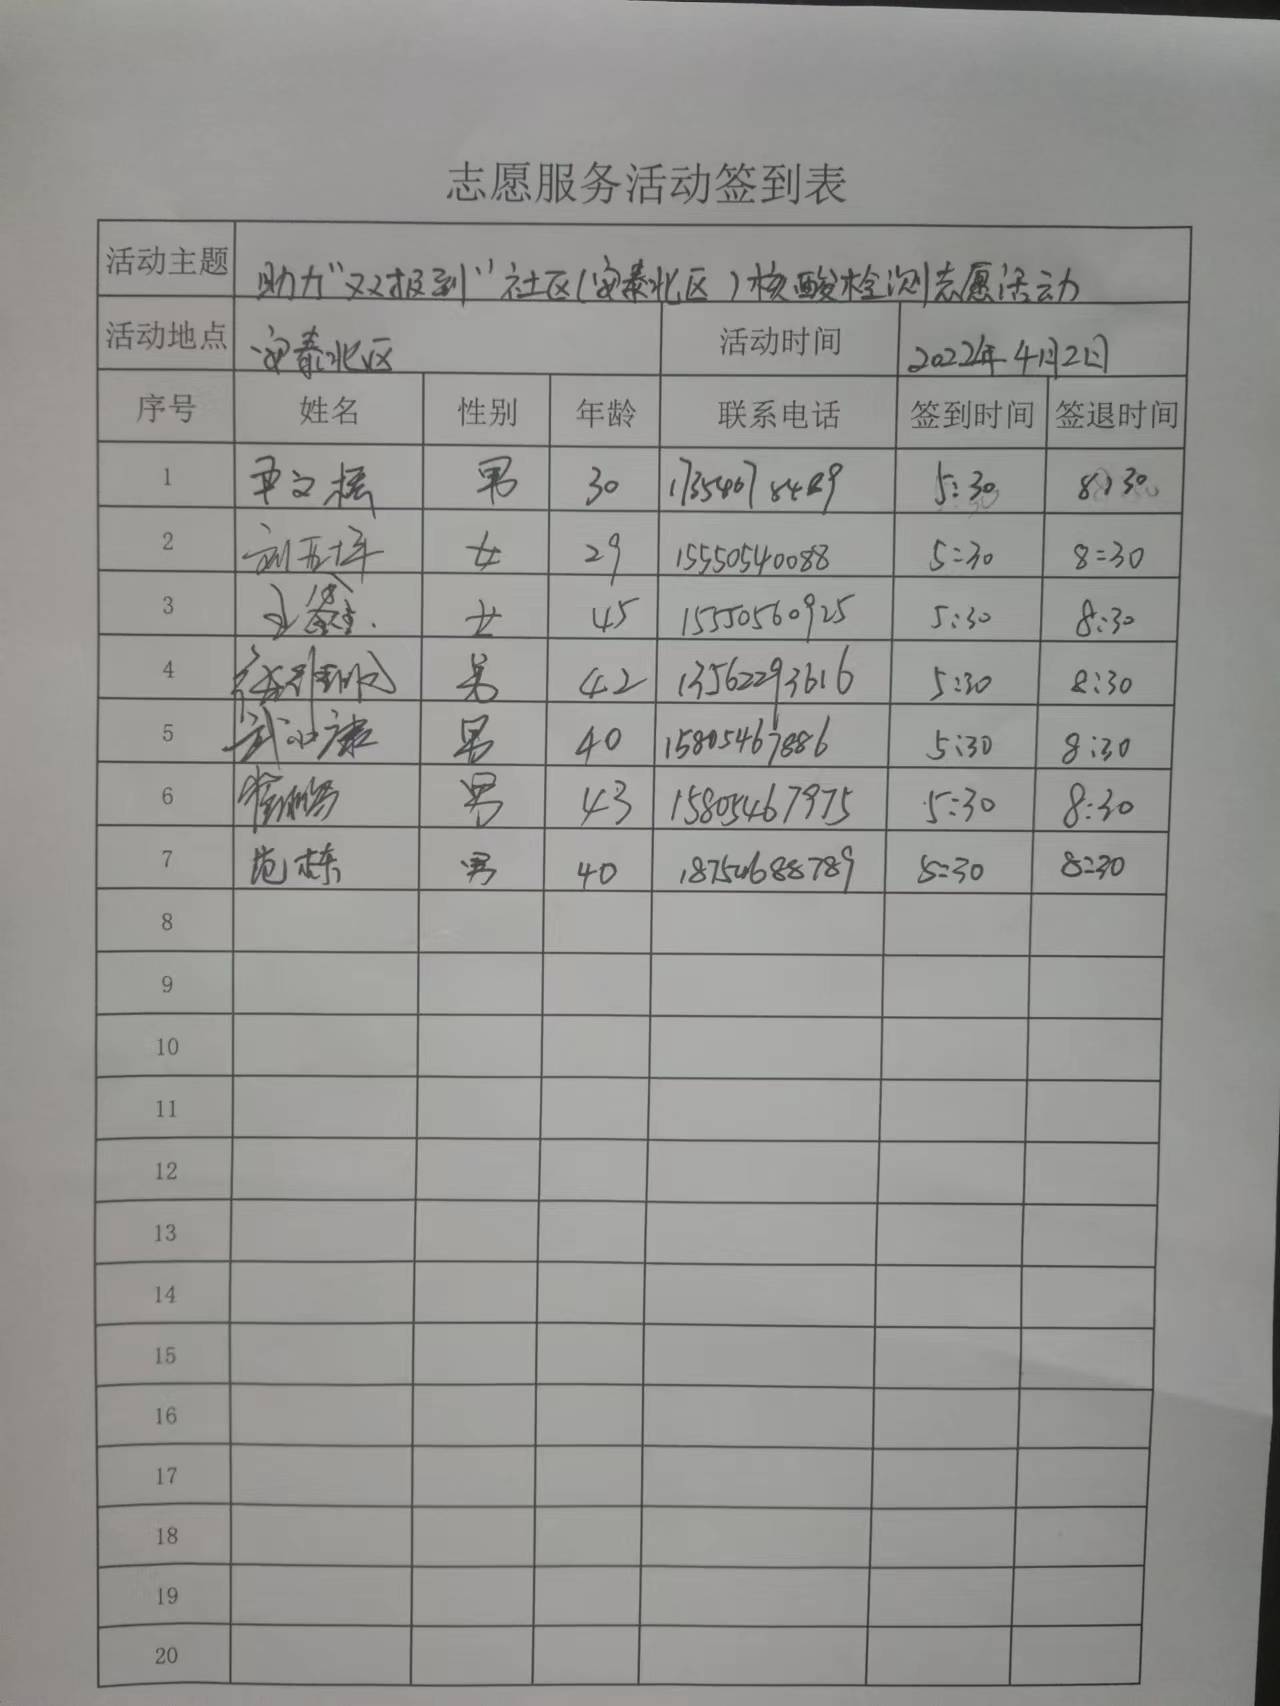 志愿服务活动签到表
活动主题 助力"双报到"社区(安泰北区)核酸检测志愿活动
活动地点 安泰北区 活动时间 2022年4月2日
序号 姓名 性别 年龄 联系电话 签到时间 签退时间
1 男 30 5:30 8:30
2 女 29 15550540088 5:30 8:30
3 王鑫 女 45 15550560925 5:30 8:30
4 男 42 13562293616 5:30 8:30
5 武小康 男 40 15805467886 5:30 8:30
6 崔鹏 男 43 15805467975 5:30 8:30
7 范栋 男 40 18754688789 5:30 8:30
8
9
10
11
12
13
14
15
16
17
18
19
20